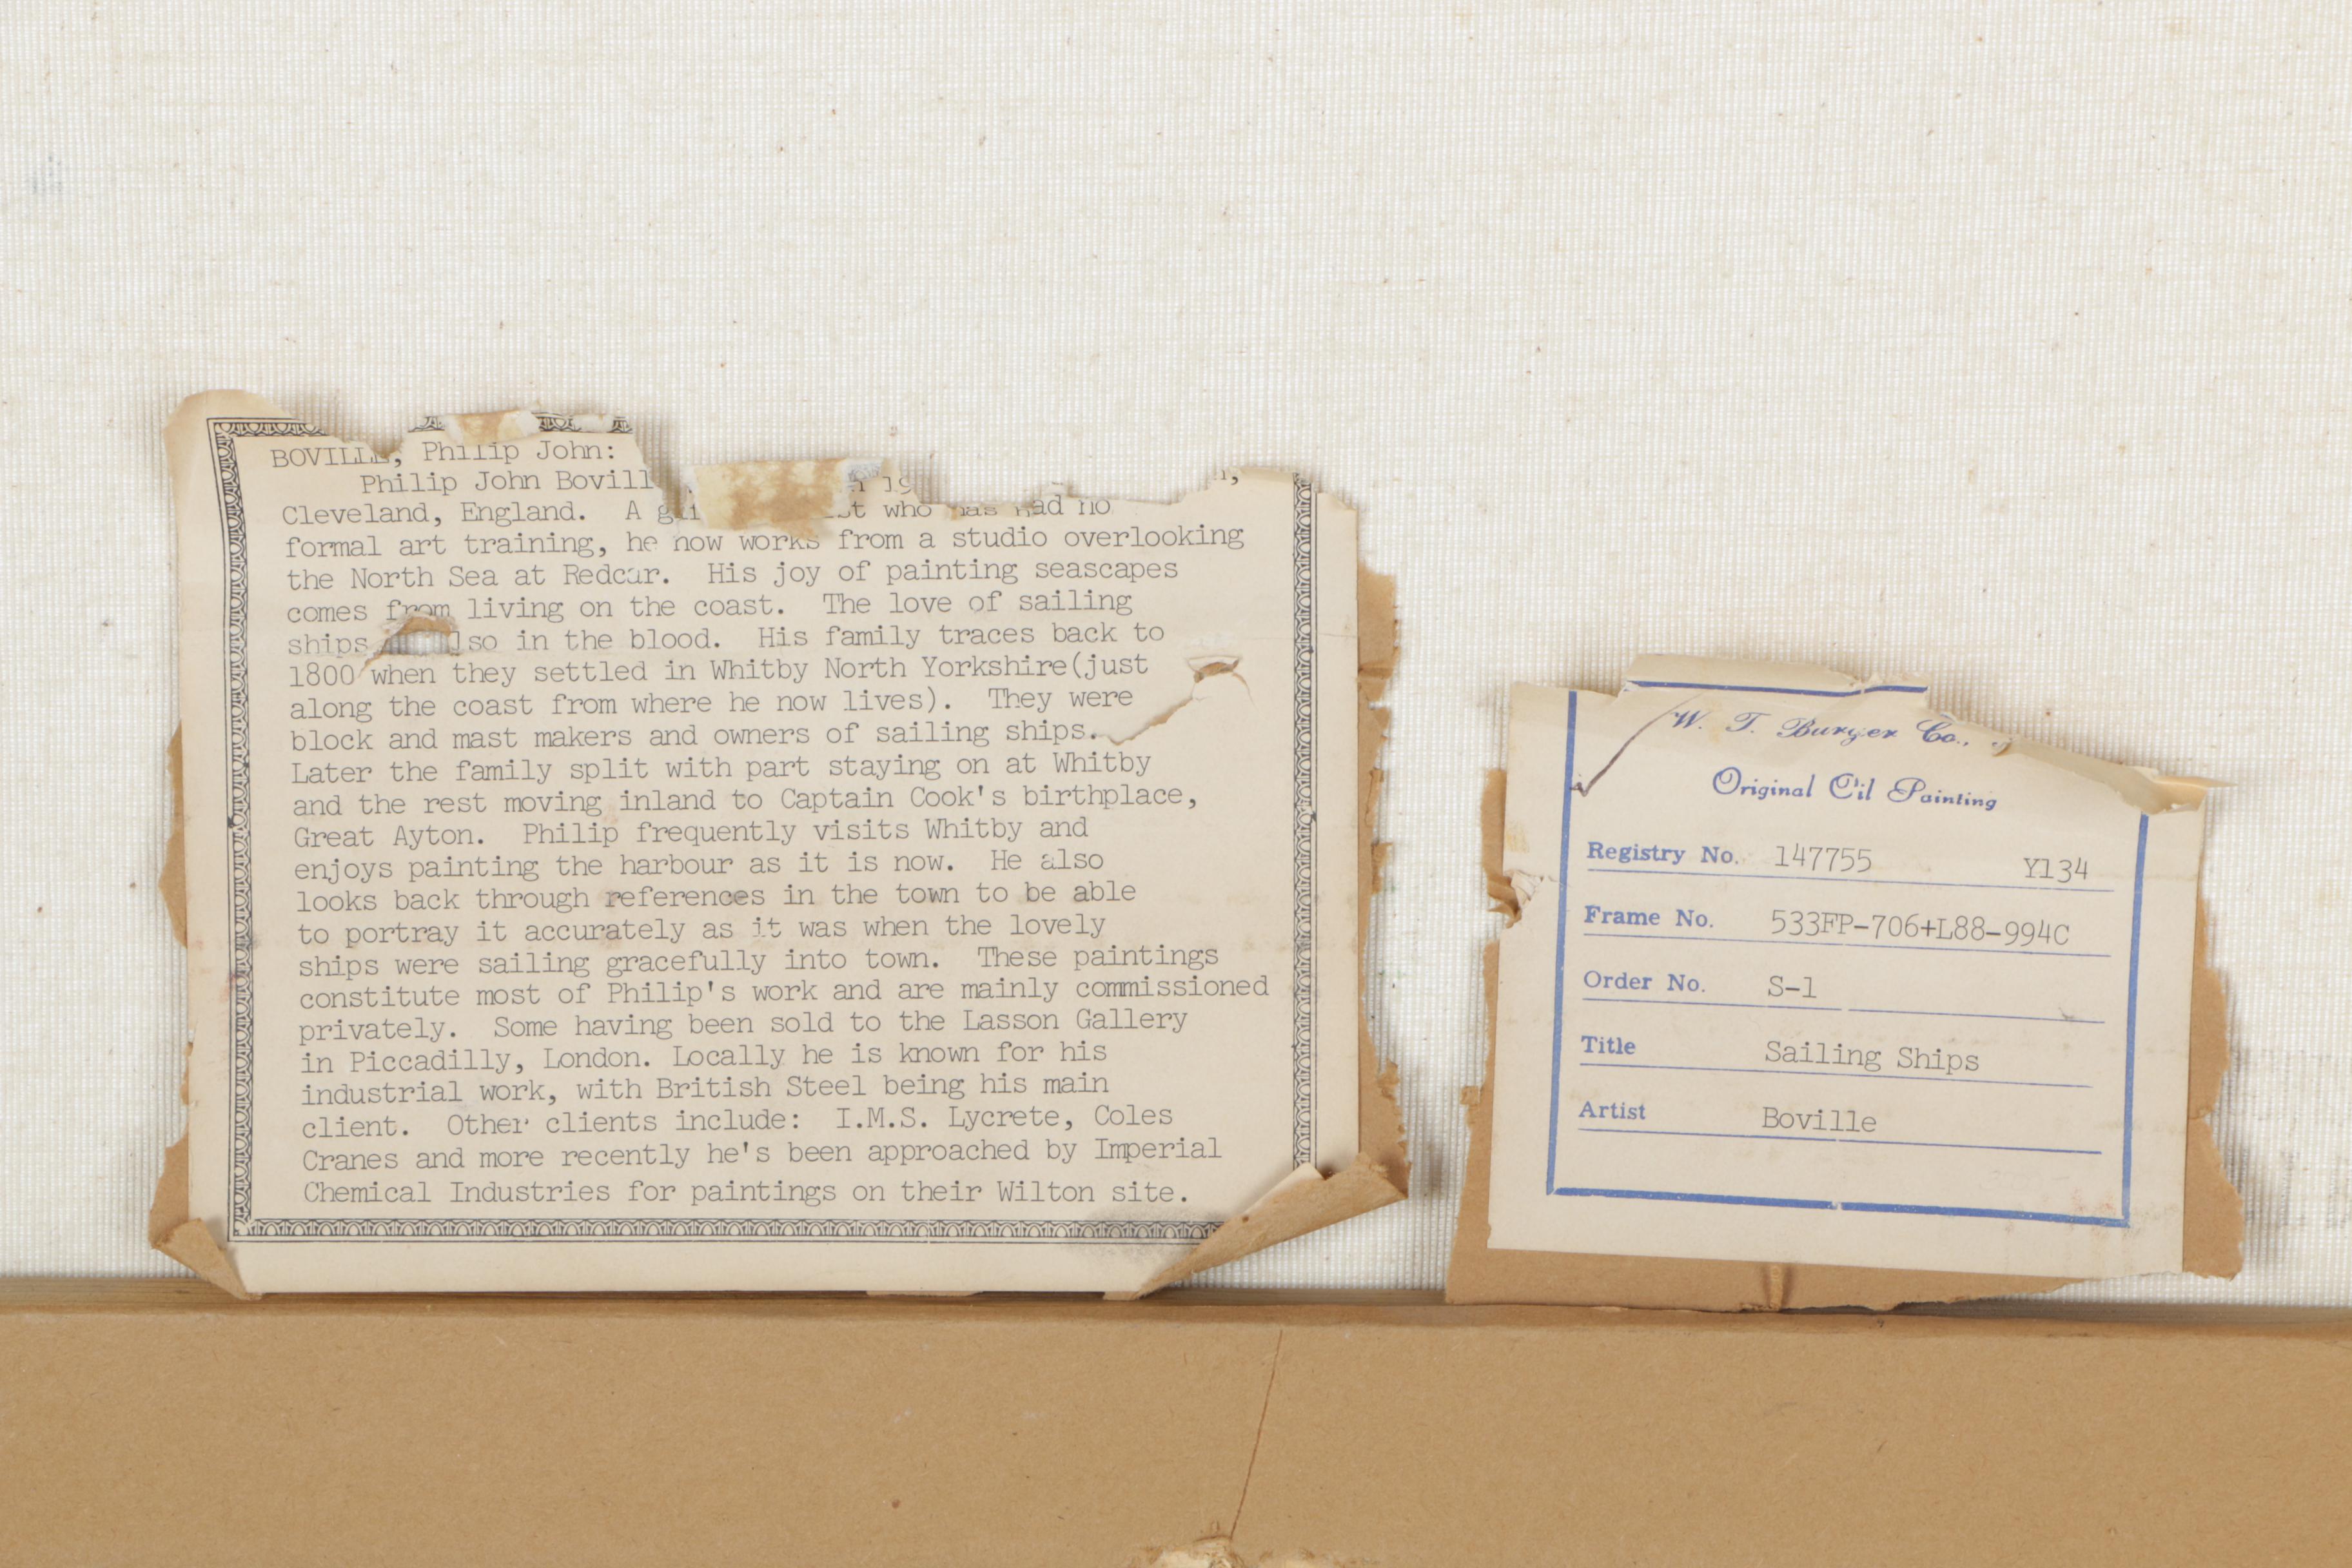 BOVILLE, Philip John:
Philip John Bovill
Cleveland, England. A who has had no
formal art training, he now works from a studio overlooking
the North Sea at Redcar. His joy of painting seascapes
comes from living on the coast. The love of sailing
ships in the blood. His family traces back to
1800 when they settled in Whitby North Yorkshire(just
along the coast from where he now lives). They were
block and mast makers and owners of sailing ships.
Later the family split with part staying on at Whitby
and the rest moving inland to Captain Cook's birthplace,
Great Ayton. Philip frequently visits Whitby and
enjoys painting the harbour as it is now. He also
looks back through references in the town to be able
to portray it accurately as it was when the lovely
ships were sailing gracefully into town. These paintings
constitute most of Philip's work and are mainly commissioned
privately. Some having been sold to the Lasson Gallery
in Piccadilly, London. Locally he is known for his
industrial work, with British Steel being his main
client. Other clients include: I.M.S. Lycrete, Coles
Cranes and more recently he's been approached by Imperial
Chemical Industries for paintings on their Wilton site.
W. T. Burger Co.,
Original Oil Painting
Registry No. 147755 Y134
Frame No. 533FP-706+L88-994C
Order No. S-1
Title Sailing Ships
Artist Boville